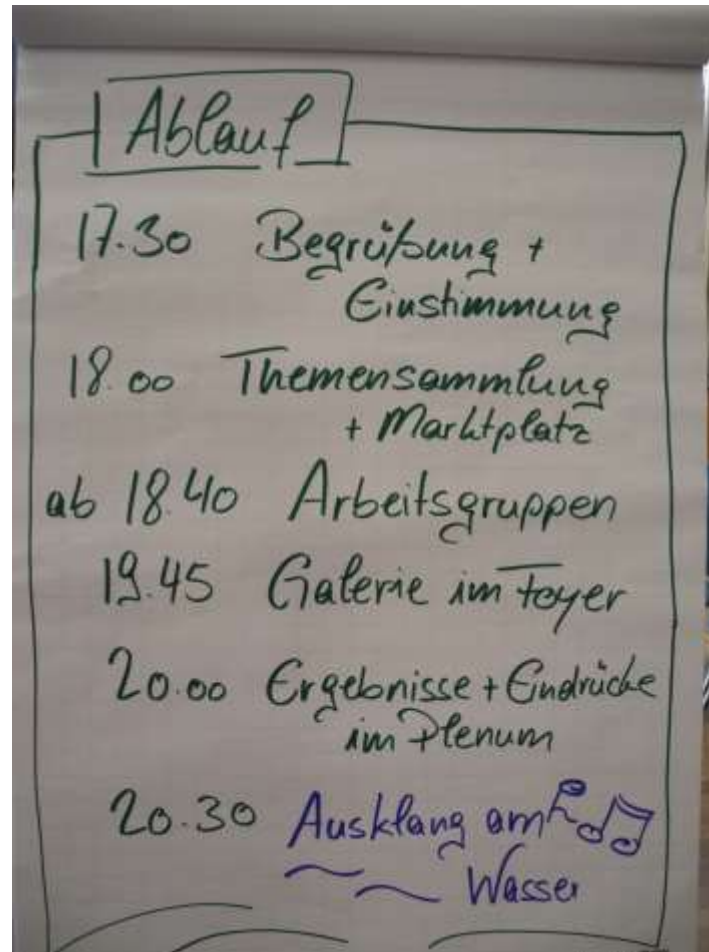 Ablauf
17.30 Begrüßung +
Einstimmung
18.00 Themensammlung
+ Marktplatz
ab 18.40 Arbeitsgruppen
19.45 Galerie im Foyer
20.00 Ergebnisse + Eindrücke
im Plenum
20.30 Ausklang am
Wasser